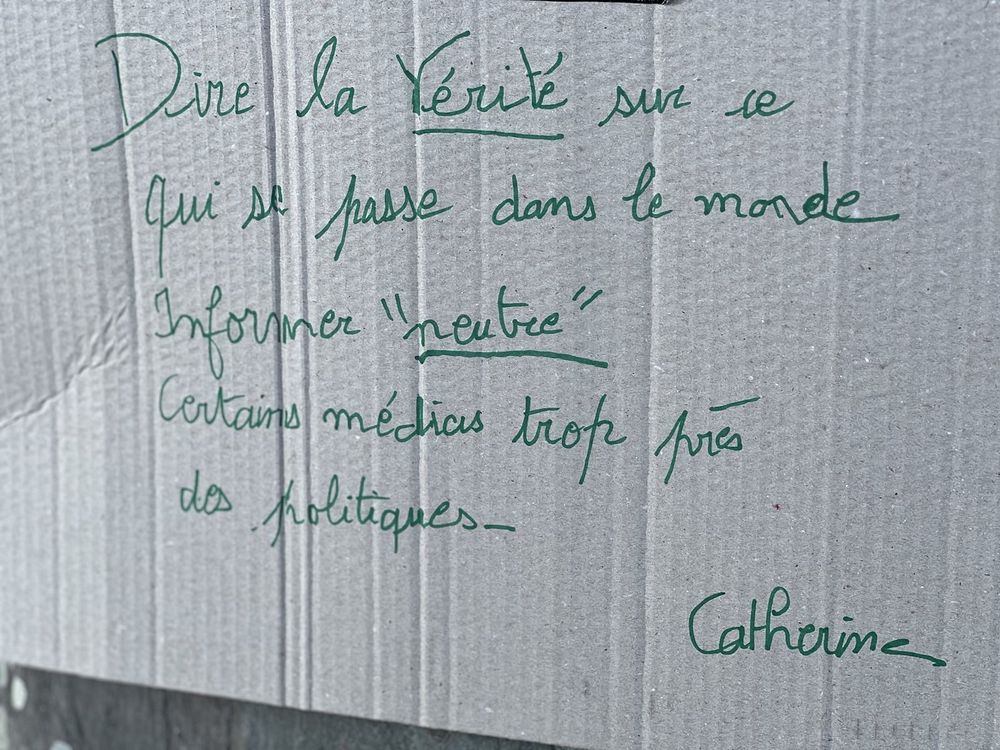 Dire la Vérité sur ce
qui se passe dans le monde
Informer "neutre"
Certains médias trop près
des politiques_
Catherine